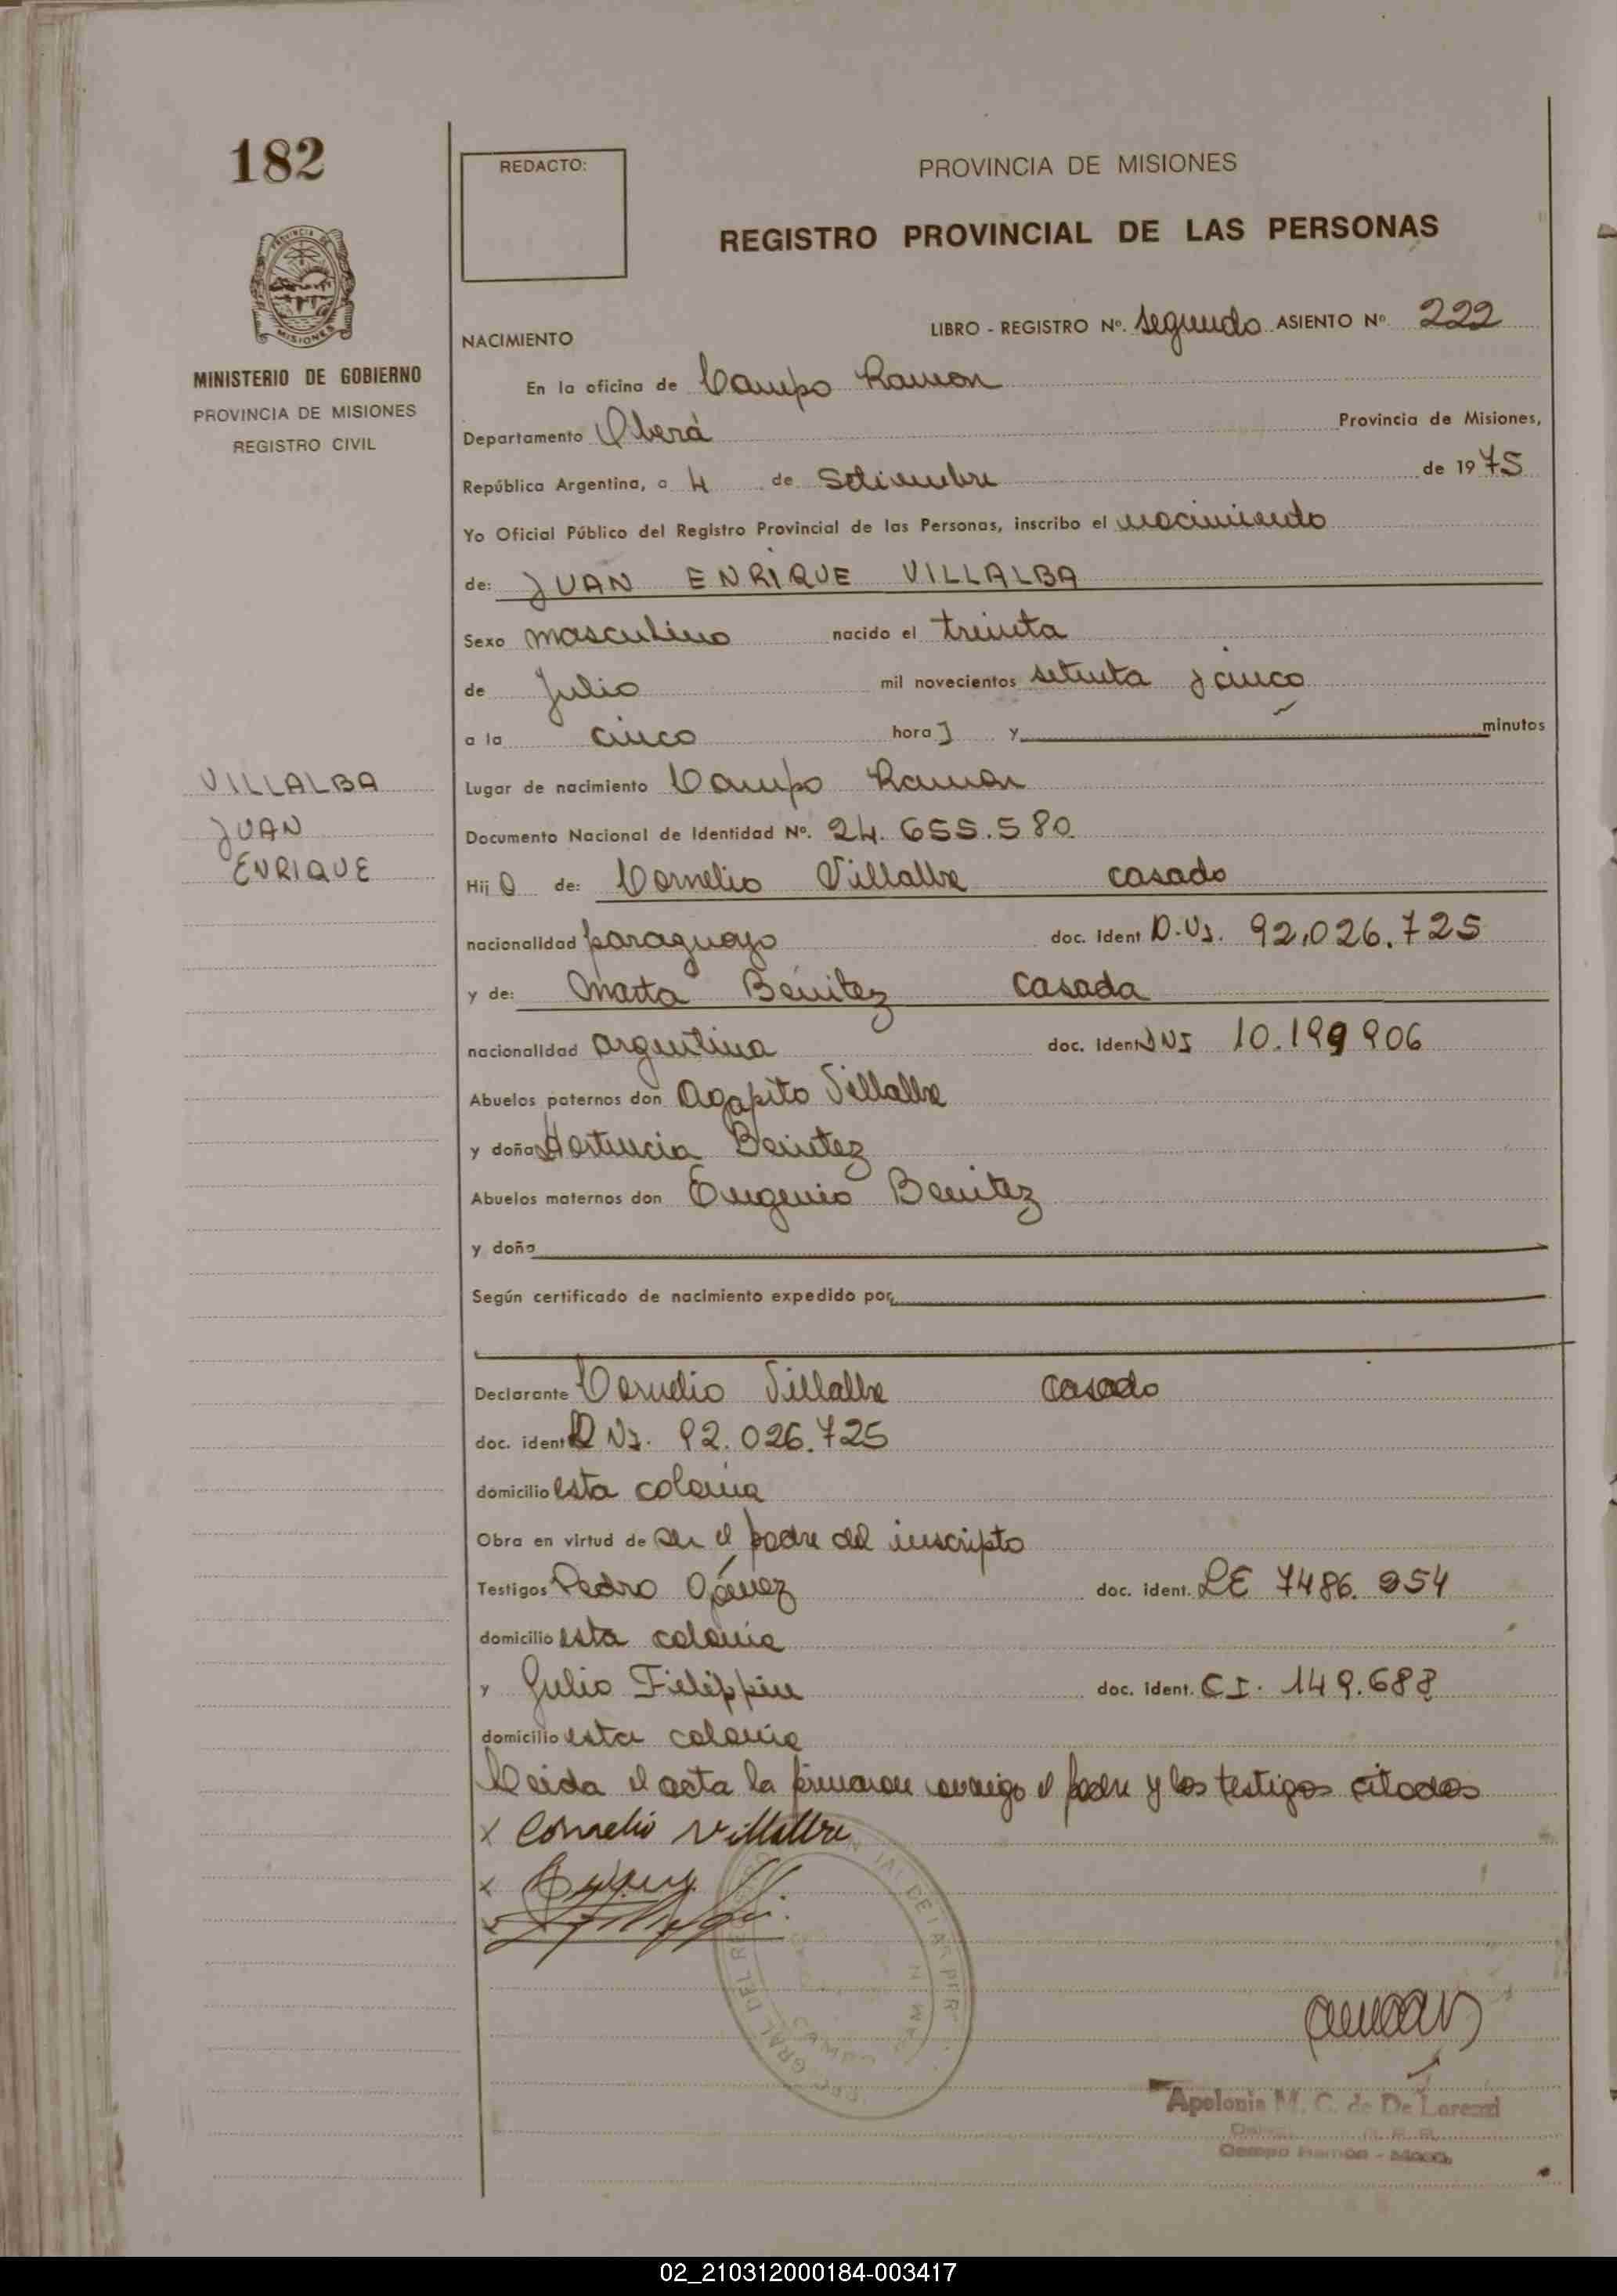 182
REDACTO:
PROVINCIA DE MISIONES
REGISTRO PROVINCIAL DE LAS PERSONAS
MISIONES
MINISTERIO DE GOBIERNO
PROVINCIA DE MISIONES
REGISTRO CIVIL
NACIMIENTO
LIBRO - REGISTRO Nº. segundo ASIENTO Nº 222
En la oficina de Campo Ramon
Departamento Oberá Provincia de Misiones,
República Argentina, a 4 de Setiembre de 1975
Yo Oficial Público del Registro Provincial de las Personas, inscribo el nacimiento
de: JUAN ENRIQUE VILLALBA
Sexo masculino nacido el treinta
de Julio mil novecientos setenta y cinco
a la cinco hora y minutos
VILLALBA
JUAN
ENRIQUE
Lugar de nacimiento Campo Ramon
Documento Nacional de Identidad Nº. 24.655.580
Hijo de: Cornelio Villalba casado
nacionalidad paraguayo doc. ident D.NI. 92.026.725
y de: Marta Benitez casada
nacionalidad argentina doc. ident DNI 10.199906
Abuelos paternos don Agapito Villalba
y doña Hortencia Benitez
Abuelos maternos don Eugenio Benitez
y doña
Según certificado de nacimiento expedido por
Declarante Cornelio Villalba casado
doc. ident D NI. 92.026.725
domicilio esta colonia
Obra en virtud de ser el padre del inscripto
Testigos Pedro doc. ident. LE 7486.954
domicilio esta colonia
y Julio doc. ident. C.I. 149.688
domicilio esta colonia
Leida el acta la firmaron conmigo el padre y los testigos citados
x Cornelio Villalba
x
x
Apolonia M. C. de De Lorenzi
Campo Ramón - Mnes.
02_210312000184-003417